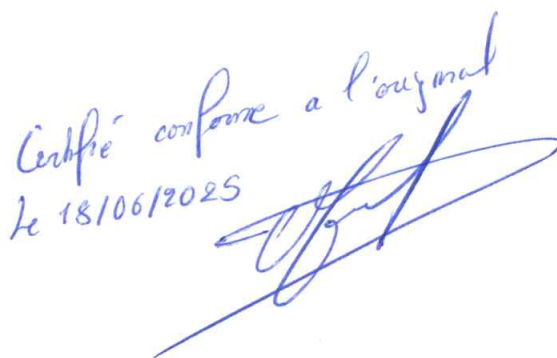 Certifié conforme a l'original
Le 18/06/2025